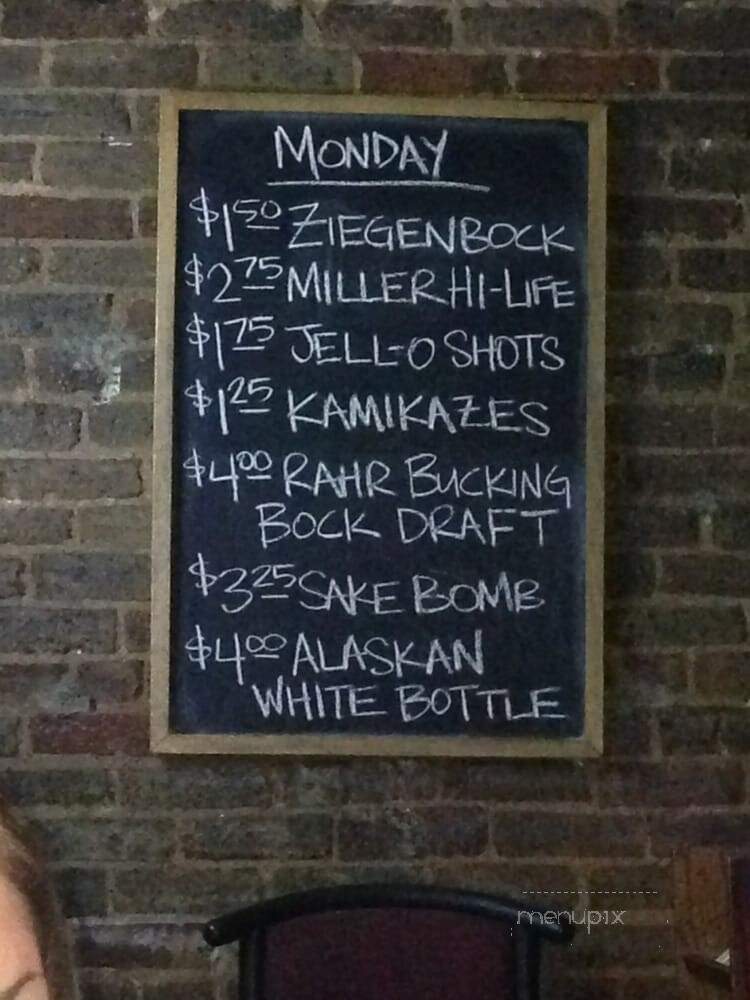 MONDAY
$1.50 ZIEGENBOCK
$2.75 MILLER HI-LIFE
$1.75 JELL-O SHOTS
$1.25 KAMIKAZES
$4.00 RAHR BUCKING
BOCK DRAFT
$3.25 SAKE BOMB
$4.00 ALASKAN
WHITE BOTTLE
menupix